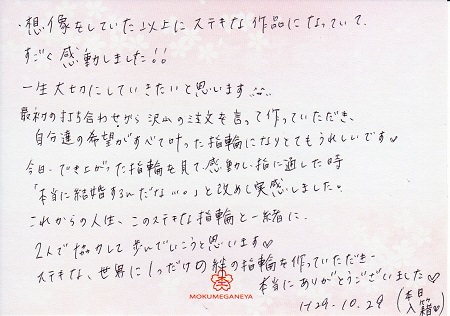 ・想像をしていた以上にステキな作品になっていて、
すごく感動しました!!
一生大切にしていきたいと思います
最初の打ち合わせから沢山の注文を言って作っていただき、
自分達の希望がすべて叶った指輪になりとてもうれしいです♡
今日、でき上がった指輪を見て、感動し、指に通した時
「本当に結婚するんだな…。」と改めて実感しました。
これからの人生、このステキな指輪と一緒に、
2人で協力して歩んでいこうと思います♡
ステキな、世界に1つだけの絆の指輪を作っていただき、
本当にありがとうございました♡
MOKUMEGANEYA
H29-10.29
(本日入籍♡)